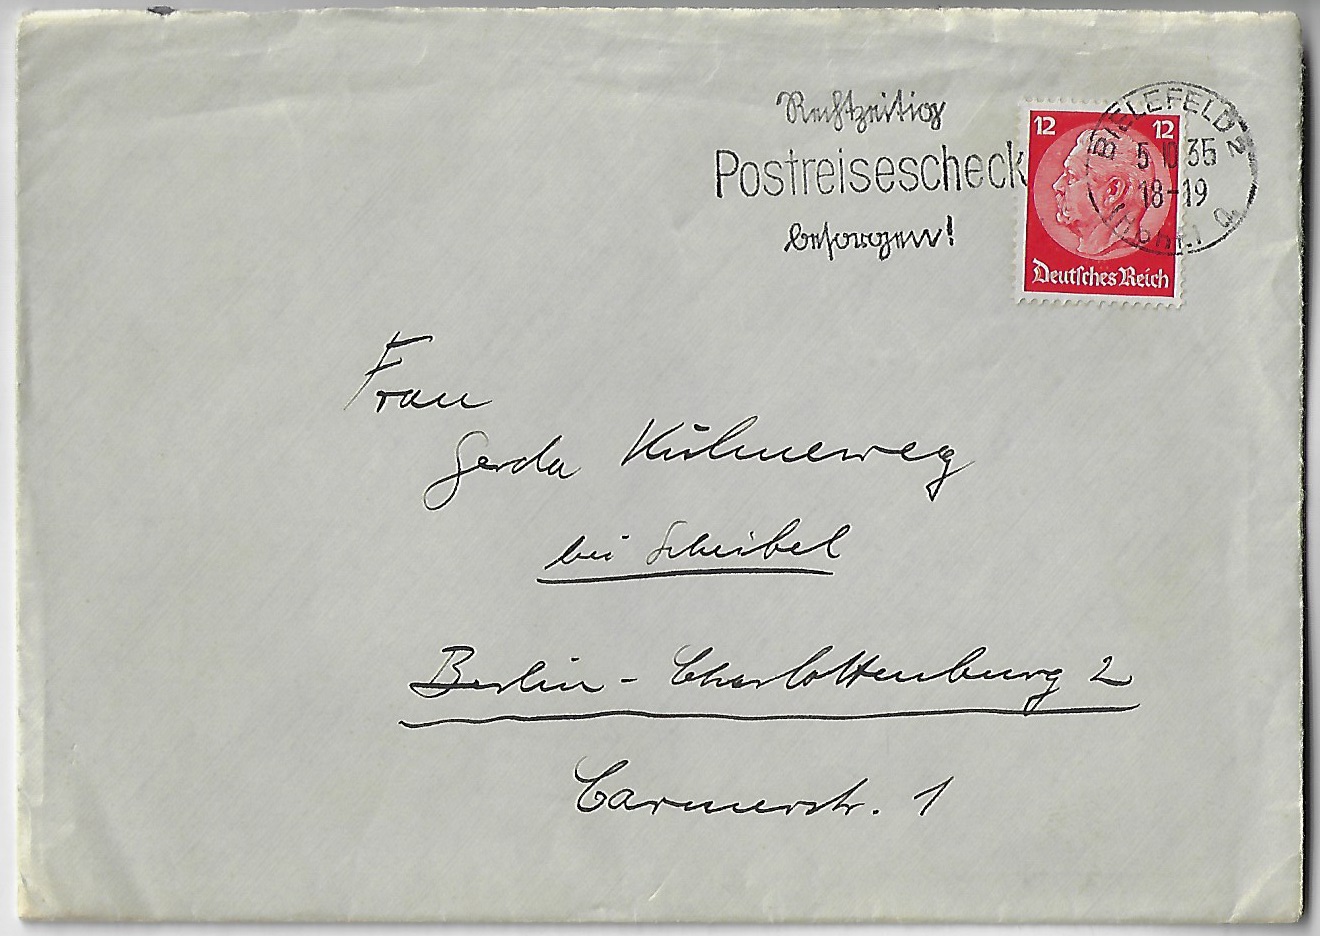 Rechtzeitig
Postreisescheck
besorgen!
12 12
Deutsches Reich
BIELEFELD 2
5 10 35
18-19
Frau
Gerda Kühneweg
bei Scheibel
Berlin-Charlottenburg 2
Carmerstr. 1